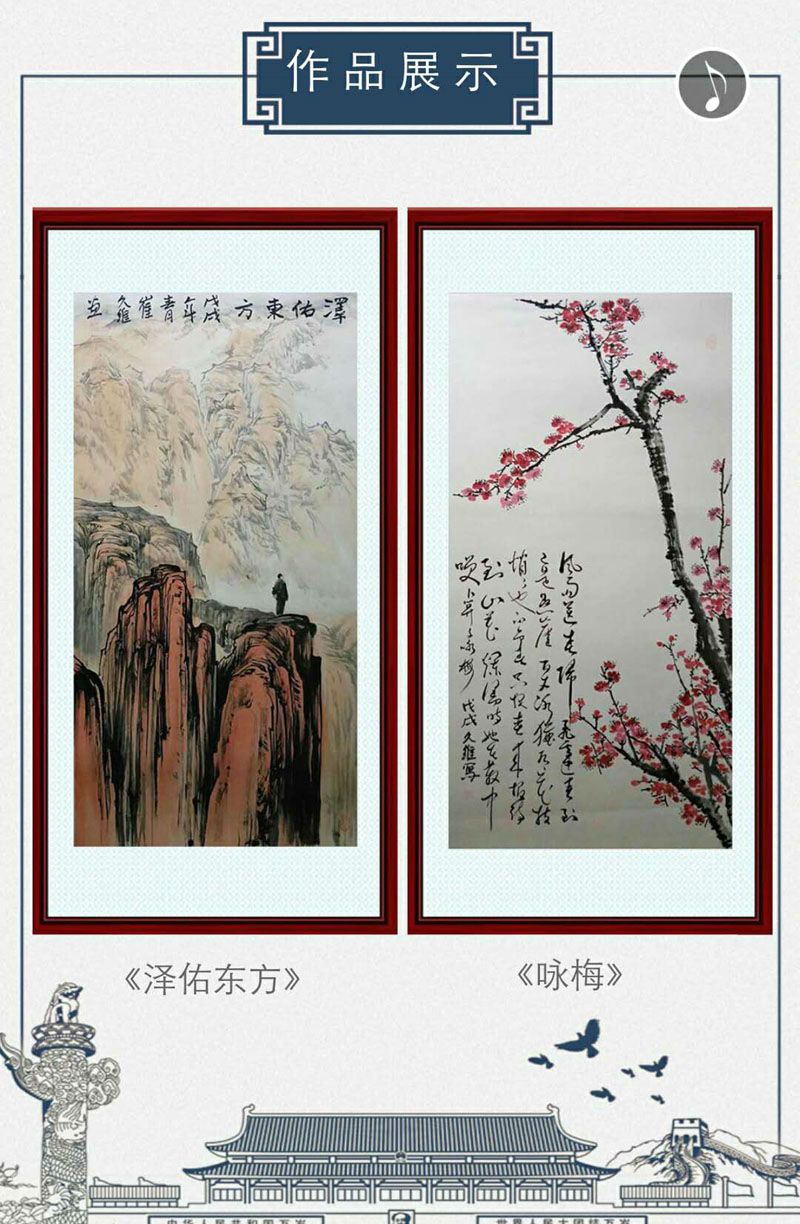 作品展示
澤佑東方 戊戌年青崔久維画
风雨送春归飞雪迎春到
已是悬崖百丈冰犹有花枝
俏俏也不争春只把春来报待
到山花烂漫时她在丛中
笑卜算子咏梅 戊戌久维写
《泽佑东方》
《咏梅》
中华人民共和国万岁
世界人民大团结万岁